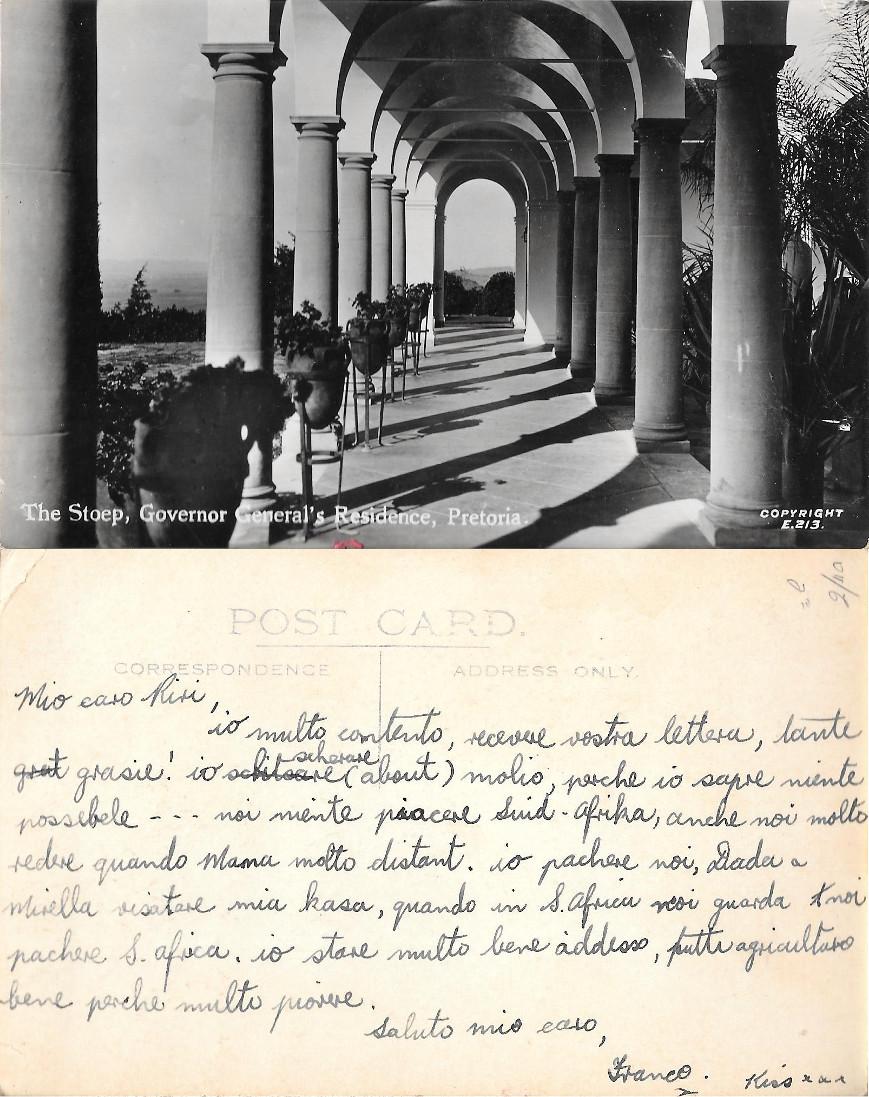 The Stoep, Governor General's Residence, Pretoria.
COPYRIGHT
E.213.
POST CARD.
CORRESPONDENCE
ADDRESS ONLY.
Mio caro Riri,
io multo contento, recevere vostra lettera, tante
grat grasie! io scherare (about) molio, perche io sapre niente
possebele --- noi niente piacere Suid-Afrika, anche noi molto
redere quando Mama molto distant. io pachere noi, Dada a
Mirella visatare mia kasa, quando in S. Africa noi guarda & noi
pachere S. africa. io stare multo bene addesso, tutti agriculturo
bene perche multo piovere.
Saluto mio caro,
Franco.
Kiss x x x